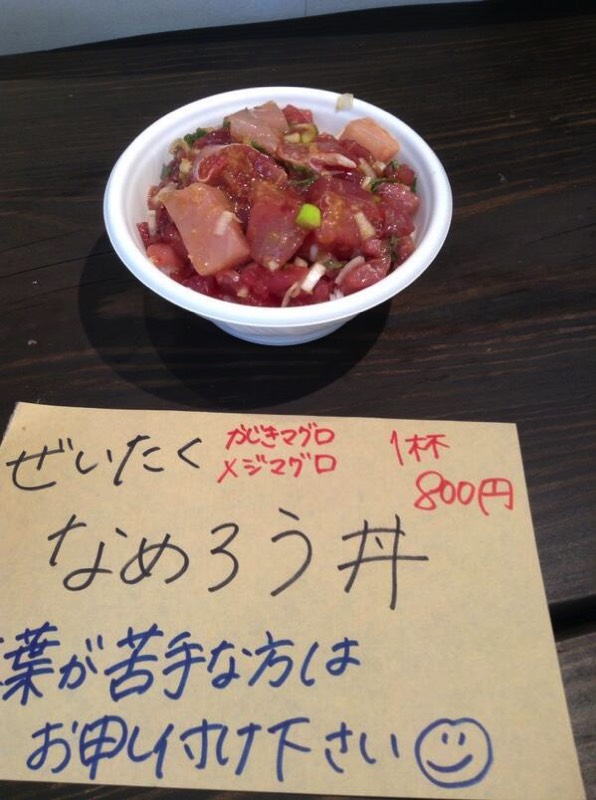 ぜいたく
かじきマグロ
メジマグロ
1杯
800円
なめろう丼
葉が苦手な方は
お申し付け下さい